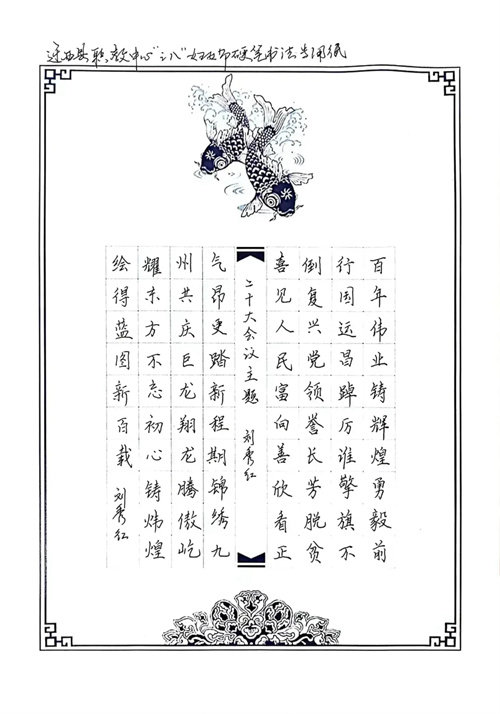 迁西县职教中心“三八”妇女节硬笔书法专用纸
百年伟业铸辉煌勇毅前
行国运昌踔厉谁擎旗不
倒复兴党领誉长芳脱贫
喜见人民富向善欣看正
二十大会议主题 刘秀红
气昂更踏新程期锦绣九
州共庆巨龙翔龙腾傲屹
耀东方不忘初心铸炜煌
绘得蓝图新百载 刘秀红